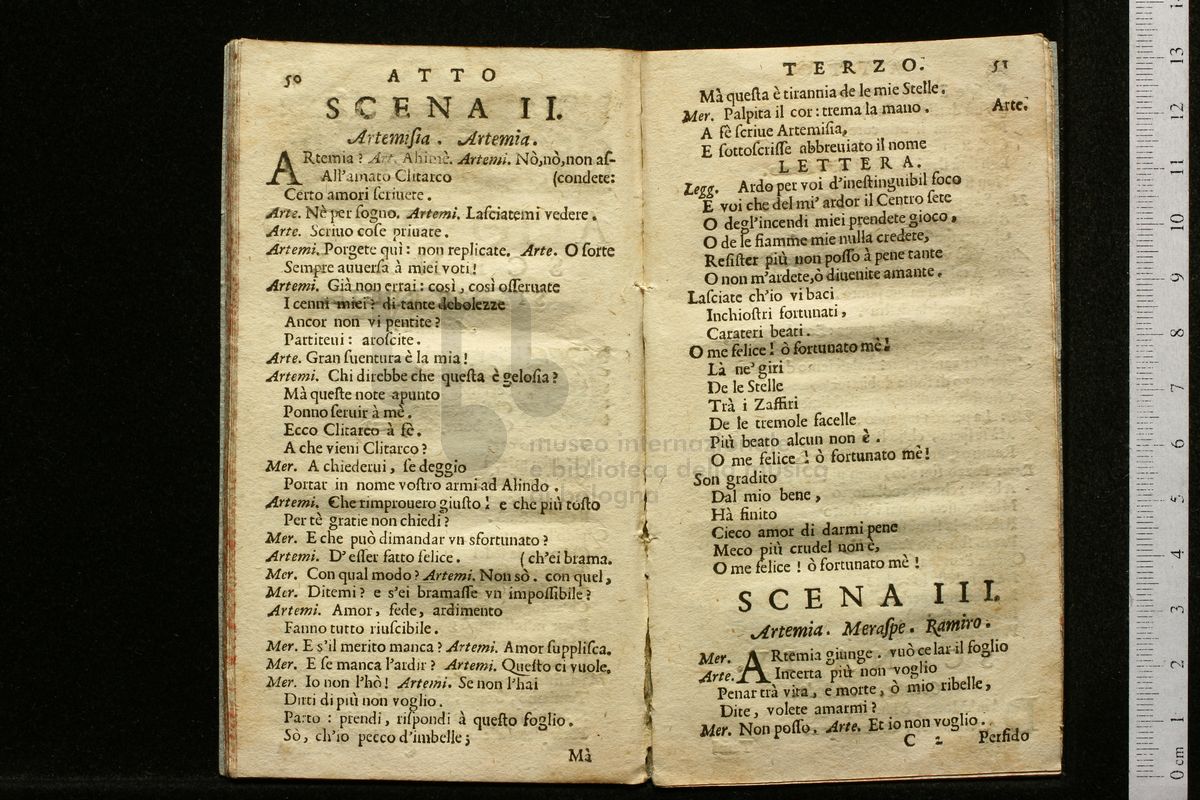 50 ATTO
SCENA II.
Artemiſia. Artemia.
ARtemia? Art. Ahimè. Artemi. Nò, nò, non aſ-
All'amato Clitarco (condete:
Certo amori ſcriuete.
Arte. Nè per ſogno. Artemi. Laſciatemi vedere.
Arte. Scriuo coſe priuate.
Artemi. Porgete quì: non replicate. Arte. O ſorte
Sempre auuerſa à miei voti!
Artemi. Già non errai: così, così oſſeruate
I cenni miei? di tante debolezze
Ancor non vi pentite?
Partiteui: aroſcite.
Arte. Gran ſuentura è la mia!
Artemi. Chi direbbe che queſta è geloſia?
Mà queſte note apunto
Ponno ſeruir à mè.
Ecco Clitarco à fè.
A che vieni Clitarco?
Mer. A chiederui, ſe deggio
Portar in nome voſtro armi ad Alindo.
Artemi. Che rimprouero giuſto! e che più toſto
Per tè gratie non chiedi?
Mer. E che può dimandar vn sfortunato?
Artemi. D'eſſer fatto felice. (ch'ei brama.
Mer. Con qual modo? Artemi. Non sò. con quel,
Mer. Ditemi? e s'ei bramaſſe vn impoſſibile?
Artemi. Amor, fede, ardimento
Fanno tutto riuſcibile.
Mer. E s'il merito manca? Artemi. Amor ſuppliſca.
Mer. E ſe manca l'ardir? Artemi. Queſto ci vuole.
Mer. Io non l'hò! Artemi. Se non l'hai
Dirti di più non voglio.
Parto: prendi, riſpondi à queſto foglio.
Sò, ch'io pecco d'imbelle;
Mà
TERZO. 51
Mà queſta è tirannia de le mie Stelle.
Mer. Palpita il cor: trema la mano. Arte.
A fè ſcriue Artemiſia,
E ſottoſcriſſe abbreuiato il nome
LETTERA.
Legg. Ardo per voi d'ineſtinguibil foco
E voi che del mi' ardor il Centro ſete
O degl'incendi miei prendete gioco,
O de le fiamme mie nulla credete,
Reſiſter più non poſſo à pene tante
O non m'ardete, ò diuenite amante.
Laſciate ch'io vi baci
Inchioſtri fortunati,
Carateri beati.
O me felice! ò fortunato mè!
Là ne' giri
De le Stelle
Trà i Zaffiri
De le tremole facelle
Più beato alcun non è.
O me felice! ò fortunato mè!
Son gradito
Dal mio bene,
Hà finito
Cieco amor di darmi pene
Meco più crudel non è,
O me felice! ò fortunato mè!
SCENA III.
Artemia. Meraſpe. Ramiro.
Mer. ARtemia giunge. vuò celar il foglio
Arte. Incerta più non voglio
Penar trà vita, e morte, ò mio ribelle,
Dite, volete amarmi?
Mer. Non poſſo. Arte. Et io non voglio.
C 2 Perfido
museo internaz
e biblioteca della musica
bologna
0 cm 1 2 3 4 5 6 7 8 9 10 11 12 13